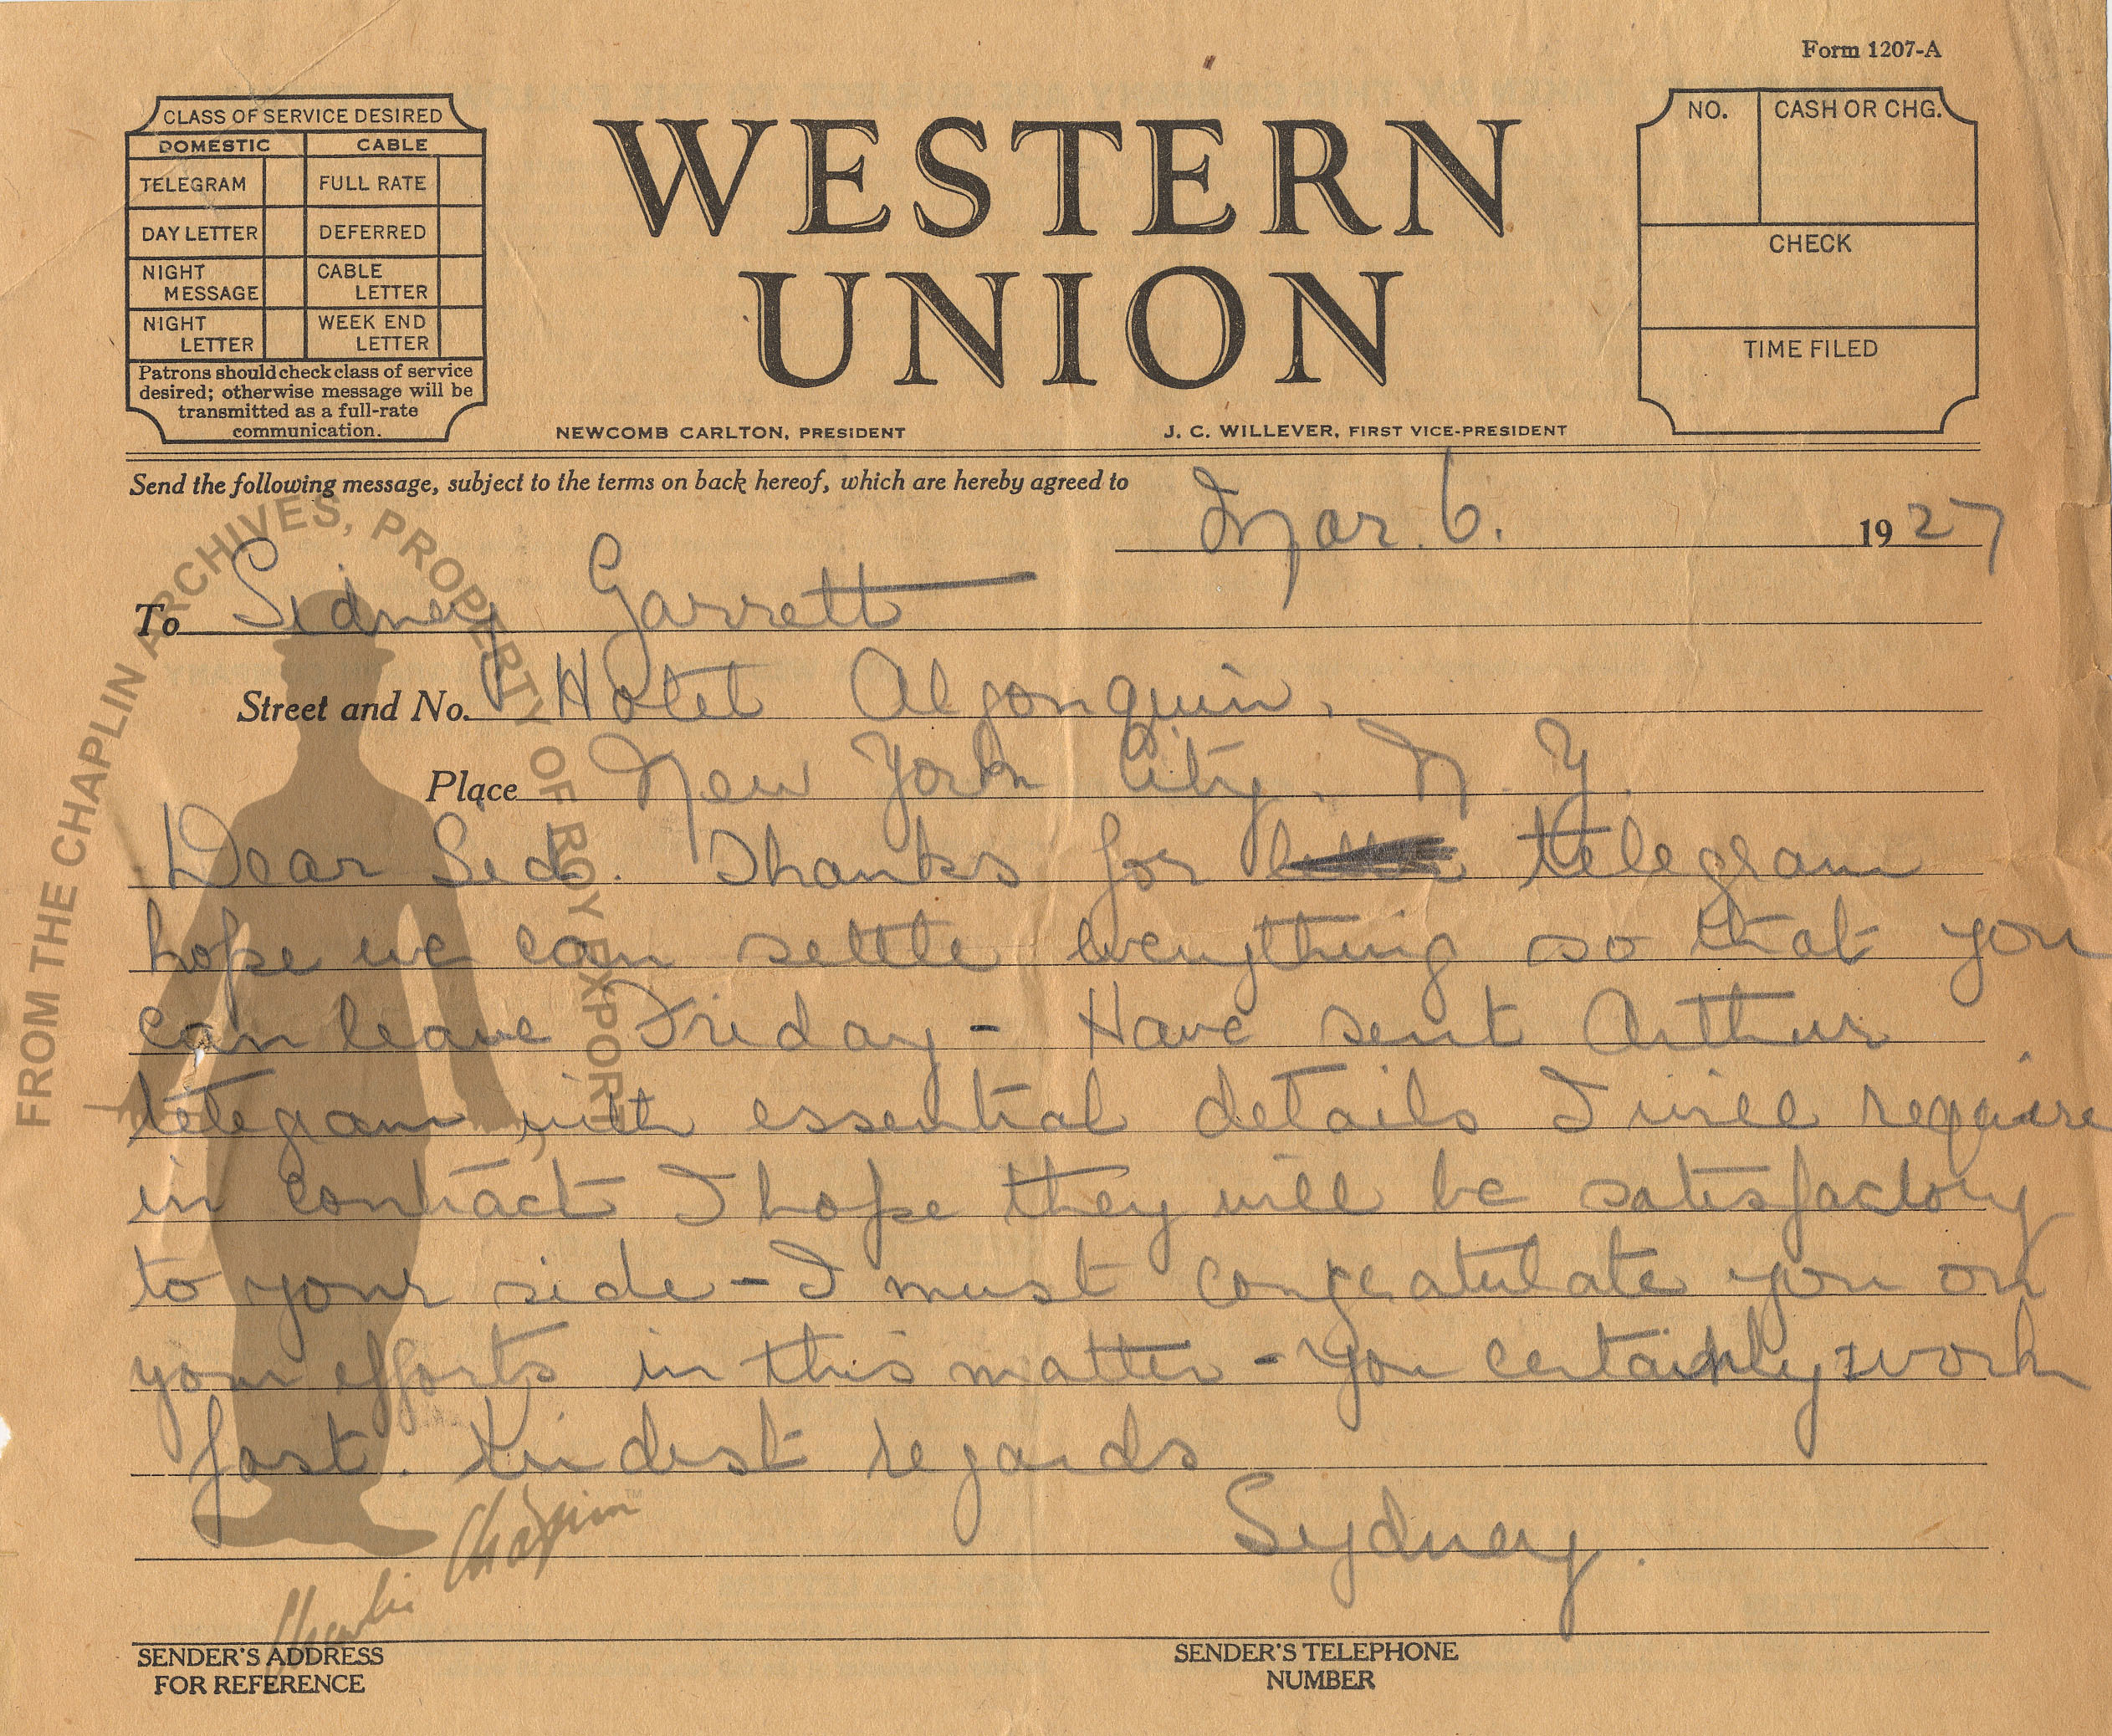 Form 1207-A
CLASS OF SERVICE DESIRED
DOMESTIC CABLE
TELEGRAM FULL RATE
DAY LETTER DEFERRED
NIGHT MESSAGE CABLE LETTER
NIGHT LETTER WEEK END LETTER
Patrons should check class of service
desired; otherwise message will be
transmitted as a full-rate
communication.
WESTERN
UNION
NEWCOMB CARLTON, PRESIDENT J. C. WILLEVER, FIRST VICE-PRESIDENT
NO. CASH OR CHG.
CHECK
TIME FILED
Send the following message, subject to the terms on back hereof, which are hereby agreed to
Mar. 6. 1927
To Sidney Garrett
Street and No. Hotel Algonquin,
Place New York City. N. Y.
Dear Sid. Thanks for telegram
hope we can settle everything so that you
can leave Friday - Have sent Arthur
telegram with essential details I will require
in contract I hope they will be satisfactory
to your side - I must congratulate you on
your efforts in this matter - You certainly work
fast. Kindest regards
Sydney.
SENDER'S ADDRESS
FOR REFERENCE
SENDER'S TELEPHONE
NUMBER
FROM THE CHAPLIN ARCHIVES, PROPERTY OF ROY EXPORT
Charlie Chaplin™